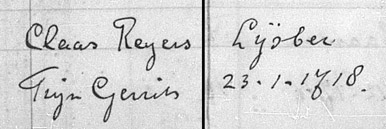 Claas Reyers Lijsber
Trijn Gerrits 23.1.1718.